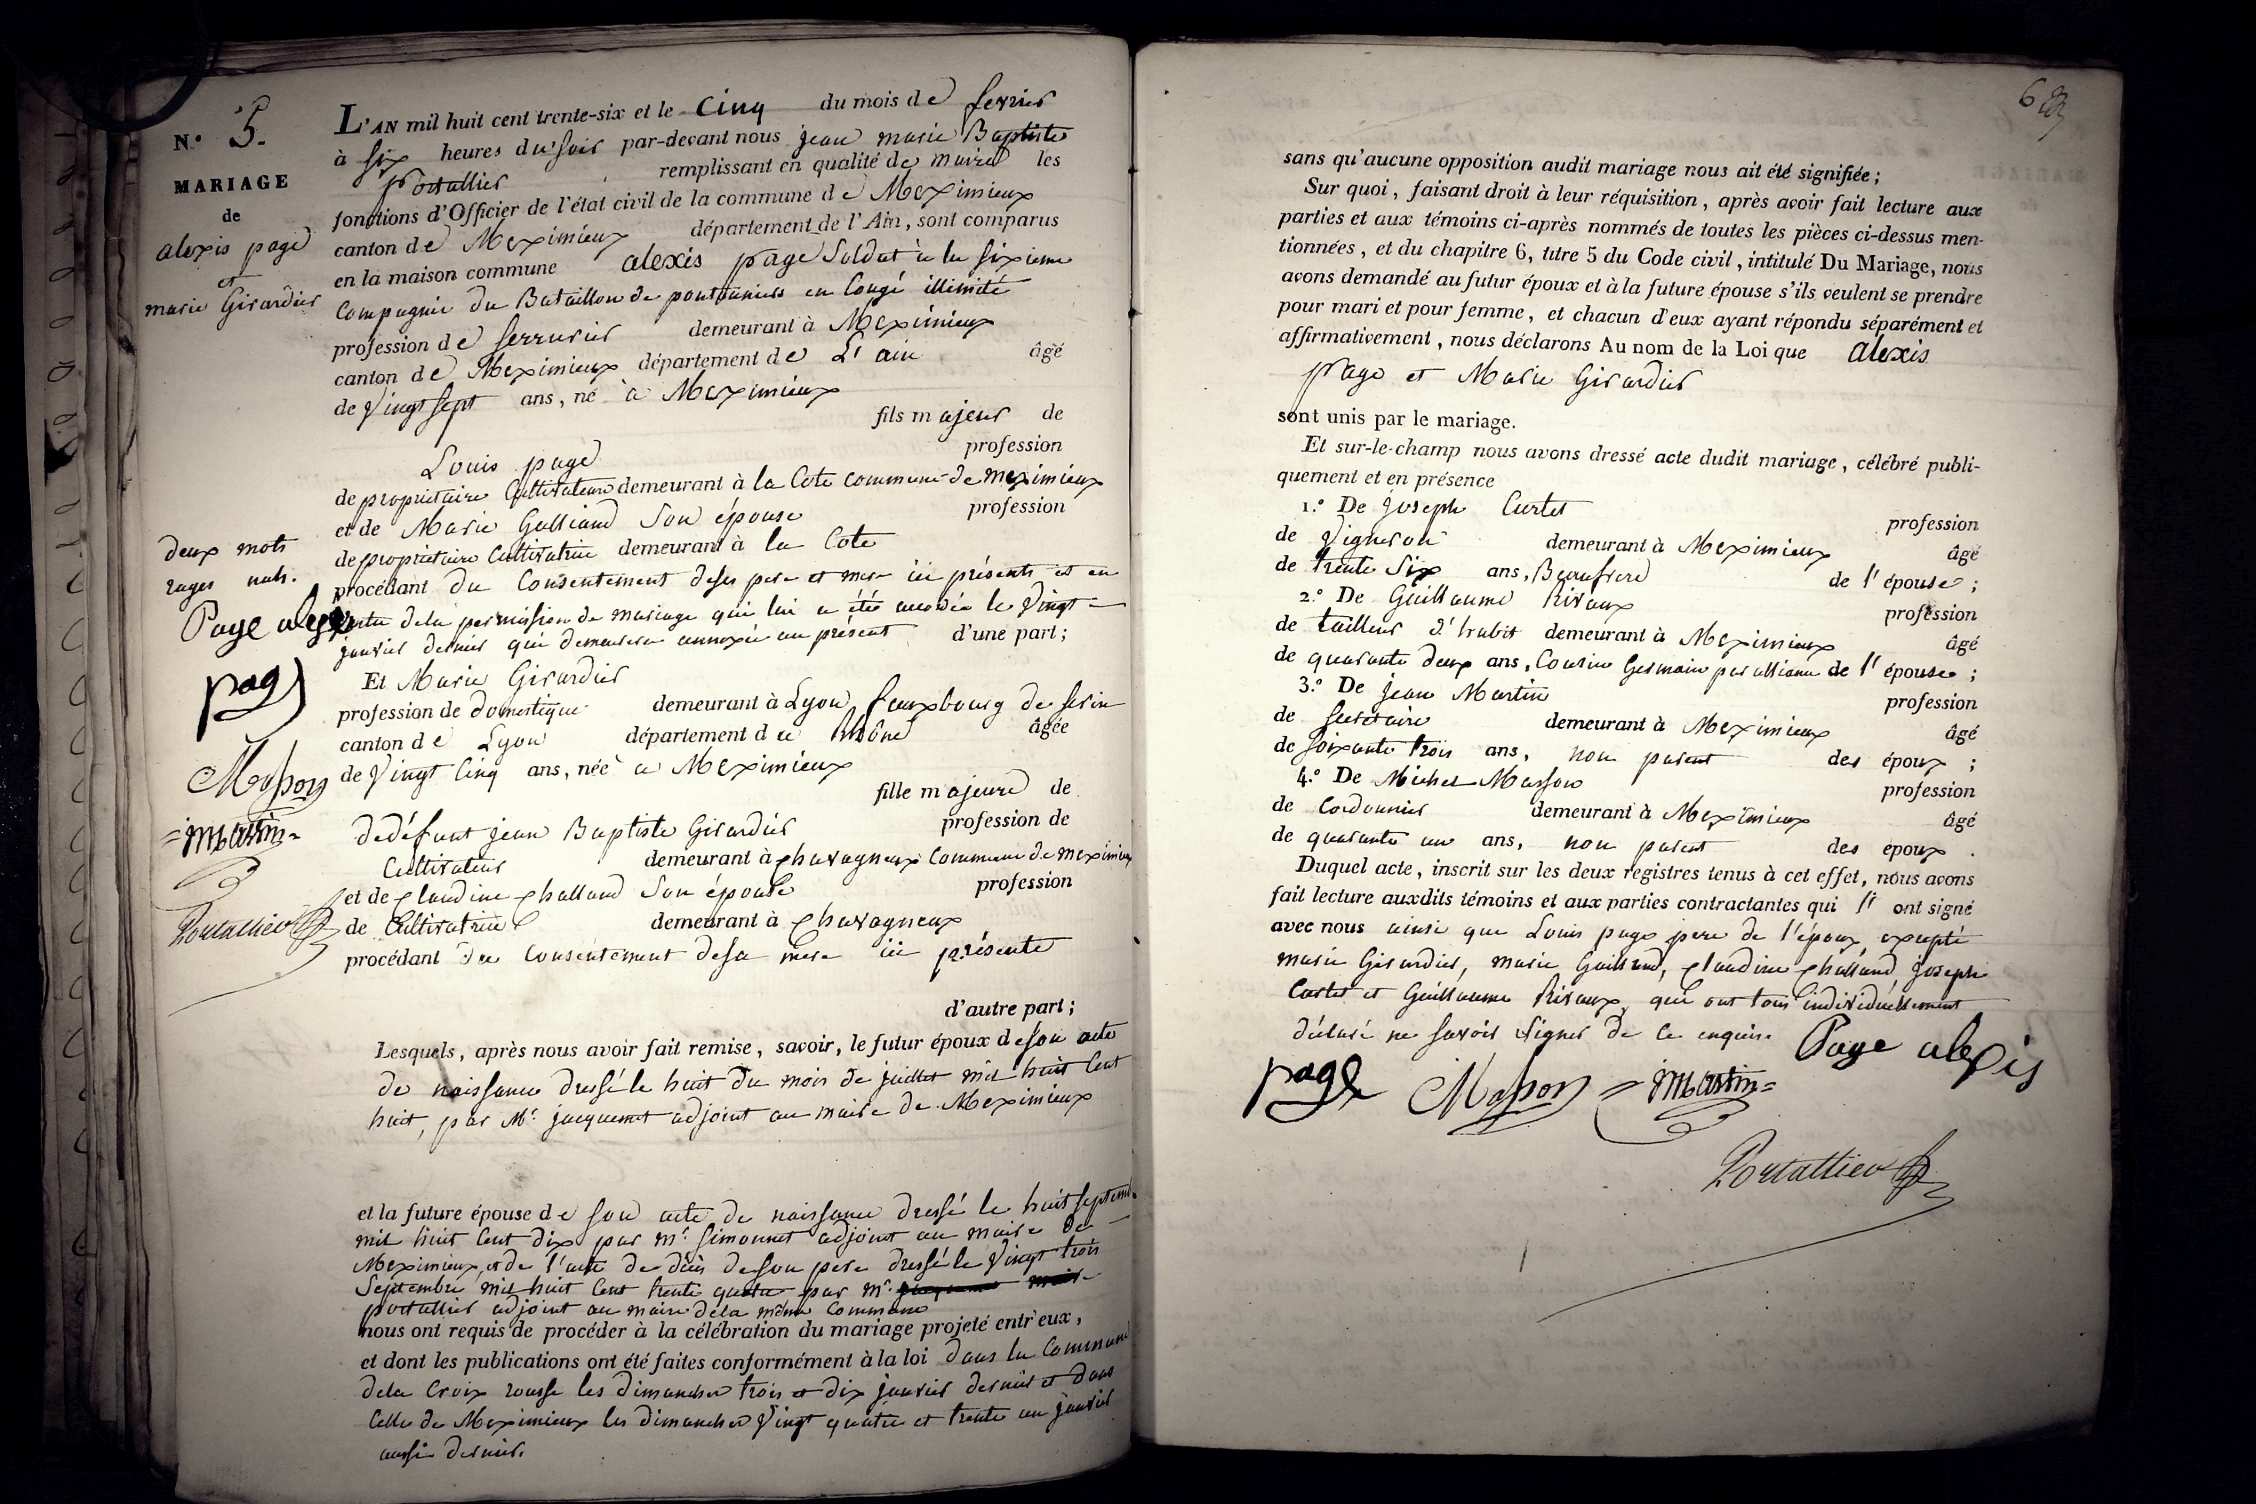 N.º 5.
MARIAGE
de
alexis page
et
marie Girardier
L'AN mil huit cent trente-six et le Cinq du mois de fevrier
à six heures du soir par-devant nous jean marie Baptiste
portallier remplissant en qualité de maire les
fonctions d'Officier de l'état civil de la commune de Meximieux
canton de Meximieux département de l'Ain, sont comparus
en la maison commune alexis page Soldat à la sixieme
Compagnie du Bataillon de pontonniers en Congé illimité
profession de serrurier demeurant à Meximieux
canton de Meximieux département de L'ain âgé
de Vingt sept ans, né à Meximieux
fils majeur de
Louis page profession
de propriétaire Cultivateur demeurant à la Cote commune de meximieux
et de Marie Galliand son épouse profession
de propriétaire Cultivatrice demeurant à la Cote
procédant du Consentement de ses pere et mere ici présents et en
vertu de la permission de mariage qui lui a été accordée le Vingt
janvier dernier qui demeurera annexée au présent d'une part;
deux mots
rayes nuls.
Page alexis
page
Masson
=Martin=
Portallier
Et Marie Girardier
profession de domestique demeurant à Lyon fauxbourg de serin
canton de Lyon département du Rhône âgée
de Vingt Cinq ans, née à Meximieux
fille majeure de
de défunt jean Baptiste Girardier profession de
Cultivateur demeurant à Chavagneux Commune de meximieux
et de Claudine Challand son épouse profession
de Cultivatrice demeurant à Chavagneux
procédant du consentement de sa mere ici présente
d'autre part;
Lesquels, après nous avoir fait remise, savoir, le futur époux de son acte
de naissance dressé le huit du mois de juillet mil huit Cent
huit, par Mr. jacquemet adjoint au maire de Meximieux
et la future épouse de son acte de naissance dressé le huit septembre
mil huit Cent dix par mr. Simonnet adjoint au maire de
Meximieux, et de l'acte de décès de son pere dressé le Vingt trois
Septembre mil huit Cent trente quatre par mr.
portallier adjoint au maire de la même Commune
nous ont requis de procéder à la célébration du mariage projeté entr'eux,
et dont les publications ont été faites conformément à la loi dans la Commune
de la Croix rousse les dimanches trois et dix janvier dernier et dans
Celle de Meximieux les dimanches Vingt quatre et trente un janvier
aussi dernier.
sans qu'aucune opposition audit mariage nous ait été signifiée;
Sur quoi, faisant droit à leur réquisition, après avoir fait lecture aux
parties et aux témoins ci-après nommés de toutes les pièces ci-dessus men-
tionnées, et du chapitre 6, titre 5 du Code civil, intitulé Du Mariage, nous
avons demandé au futur époux et à la future épouse s'ils veulent se prendre
pour mari et pour femme, et chacun d'eux ayant répondu séparément et
affirmativement, nous déclarons Au nom de la Loi que alexis
page et Marie Girardier
sont unis par le mariage.
Et sur-le-champ nous avons dressé acte dudit mariage, célébré publi-
quement et en présence
1.º De joseph Curtet profession
de Vigneron demeurant à Meximieux âgé
de trente Six ans, Beaufrere de l'épouse;
2.º De Guillaume Rivaux profession
de tailleur d'habit demeurant à Meximieux âgé
de quarante deux ans, Cousin Germain par alliance de l'épouse;
3.º De jean Martin profession
de secretaire demeurant à Meximieux âgé
de soixante trois ans, non parent des époux;
4.º De Michel Masson profession
de Cordonnier demeurant à Meximieux âgé
de quarante un ans, non parent des époux.
Duquel acte, inscrit sur les deux registres tenus à cet effet, nous avons
fait lecture auxdits témoins et aux parties contractantes qui l' ont signé
avec nous ainsi que Louis page pere de l'époux, excepté
marie Girardier, marie Galliand, Claudine Challand, joseph
Curtet et Guillaume Rivaux, qui ont tous individuellement
déclaré ne savoir signer de ce enquis.
Page alexis
page Masson =Martin=
Portallier